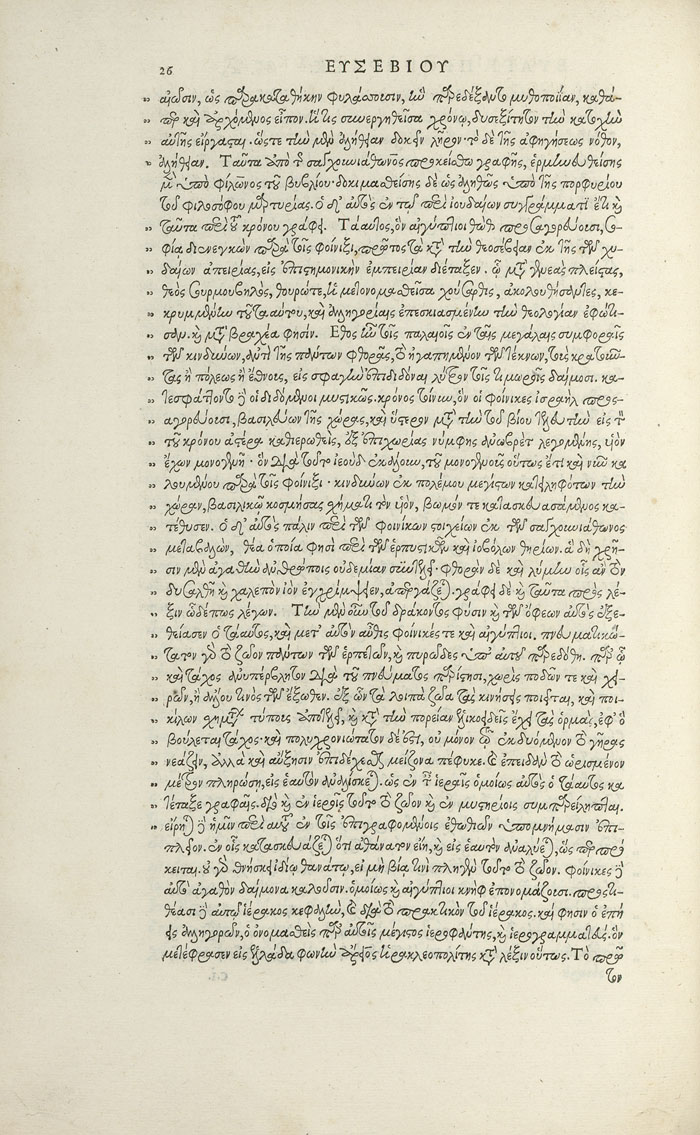 26
ΕΥΣΕΒΙΟΥ
αιῶσιν, ὡς παρακαταθήκην φυλάσσουσιν, ἣν παρεδέξαντο μυθοποιΐαν, καθά-
περ καὶ ἀρχόμενος εἶπον. ἥτις συνεργηθεῖσα χρόνῳ, δυσεξίτητον τὴν κατοχὴν
αὐτῆς εἴργασται. ὥστε τὴν μὲν ἀλήθειαν δοκεῖν λῆρον· τὸ δὲ τῆς ἀφηγήσεως νόθον,
ἀλήθειαν. Ταῦτα ἀπὸ τῆς σαγχουνιάθωνος προκείσθω γραφῆς, ἑρμηνευθείσης
μὲν ὑπὸ φίλωνος τοῦ βυβλίου· δοκιμασθείσης δὲ ὡς ἀληθῶς ὑπὸ τῆς πορφυρίου
τοῦ φιλοσόφου μαρτυρίας. ὁ δ' αὐτὸς ἐν τῷ περὶ ἰουδαίων συγγράμματι ἔτι καὶ
ταῦτα περὶ τοῦ κρόνου γράφει. Τάαυτος, ὃν αἰγύπτιοι θωὺθ προσαγορεύουσι, σο-
φίᾳ διενεγκὼν παρὰ τοῖς φοίνιξι, πρῶτος τὰ κατὰ τὴν θεοσέβειαν ἐκ τῆς τῶν χυ-
δαίων ἀπειρίας, εἰς ἐπιστημονικὴν ἐμπειρίαν διέταξεν. ᾧ μετὰ γενεὰς πλείστας,
θεὸς σουρμουβηλὸς, θουρώτε, ἡ μετονομασθεῖσα χούσαρθις, ἀκολουθήσαντες, κε-
κρυμμένην τοῦ τααύτου, καὶ ἀλληγορίαις ἐπεσκιασμένην τὴν θεολογίαν ἐφώτι-
σαν. καὶ μετὰ βραχέα φησίν. Ἔθος ἦν τοῖς παλαιοῖς ἐν ταῖς μεγάλαις συμφοραῖς
τῶν κινδύνων, ἀντὶ τῆς πάντων φθορᾶς, τὸ ἠγαπημένον τῶν τέκνων, τοὺς κρατοῦν-
τας ἢ πόλεως ἢ ἔθνους, εἰς σφαγὴν ἐπιδιδόναι λύτρον τοῖς τιμωροῖς δαίμοσι. κα-
τεσφάττοντο δὲ οἱ διδόμενοι μυστικῶς. κρόνος τοίνυν, ὃν οἱ φοίνικες ἰσραὴλ προς-
αγορεύουσι, βασιλεύων τῆς χώρας, καὶ ὕστερον μετὰ τὴν τοῦ βίου τελευτὴν εἰς τὸν
τοῦ κρόνου ἀστέρα καθιερωθεὶς, ἐξ ἐπιχωρίας νύμφης ἀνωβρὲτ λεγομένης, υἱὸν
ἔχων μονογενῆ· ὃν διὰ τοῦτο ἰεοὺδ ἐκάλουν, τοῦ μονογενοῦς οὕτως ἔτι καὶ νῦν κα
λουμένου παρὰ τοῖς φοίνιξι· κινδύνων ἐκ πολέμου μεγίστων κατειληφότων τὴν
χώραν, βασιλικῷ κοσμήσας σχήματι τὸν υἱὸν, βωμόν τε κατασκευασάμενος κα-
τέθυσεν. ὁ δ' αὐτὸς πάλιν περὶ τῶν φοινίκων στοιχείων ἐκ τῶν σαγχουνιάθωνος
μεταβαλὼν, θέα ὁποῖα φησὶ περὶ τῶν ἑρπυστικῶν καὶ ἰοβόλων θηρίων. ἃ δὴ χρῆ-
σιν μὲν ἀγαθὴν ἀνθρώποις οὐδεμίαν συντελεῖ· φθορὰν δὲ καὶ λύμην οἷς ἂν τὸν
δυσαλθῆ καὶ χαλεπὸν ἰὸν ἐγχρίμψειεν, ἀπεργάζεται. γράφει δὲ καὶ ταῦτα πρὸς λέ-
ξιν ὧδέ πως λέγων. Τὴν μὲν οὖν τοῦ δράκοντος φύσιν καὶ τῶν ὄφεων αὐτὸς ἐξε-
θείασεν ὁ τάαυτος, καὶ μετ' αὐτὸν αὖθις φοίνικές τε καὶ αἰγύπτιοι. πνευματικώ-
τατον γὰρ τὸ ζῶον πάντων τῶν ἑρπετῶν, καὶ πυρῶδες ὑπ' αὐτοῦ παρεδόθη. παρ' ᾧ
καὶ τάχος ἀνυπέρβλητον διὰ τοῦ πνεύματος παρίστησι, χωρὶς ποδῶν τε καὶ χει-
ρῶν, ἢ ἄλλου τινὸς τῶν ἔξωθεν. ἐξ ὧν τὰ λοιπὰ ζῶα τὰς κινήσεις ποιεῖται, καὶ ποι-
κίλων σχημάτων τύπους ἀποτελεῖ, καὶ κατὰ τὴν πορείαν ἑλικοειδεῖς ἔχει τὰς ὁρμὰς, ἐφ' ὃ
βούλεται τάχος· καὶ πολυχρονιώτατον δέ ἐστι, οὐ μόνον τῷ ἐκδυόμενον τὸ γῆρας
νεάζειν, ἀλλὰ καὶ αὔξησιν ἐπιδέχεσθαι μείζονα πέφυκε. καὶ ἐπειδὰν τὸ ὡρισμένον
μέτρον πληρώσῃ, εἰς ἑαυτὸν ἀναλίσκεται. ὡς ἐν ταῖς ἱεραῖς ὁμοίως αὐτὸς ὁ τάαυτος κα
τέταξε γραφαῖς. διὸ καὶ ἐν ἱεροῖς τοῦτο τὸ ζῶον καὶ ἐν μυστηρίοις συμπαρείληπται.
εἴρηται δὲ ἡμῖν περὶ αὐτοῦ ἐν τοῖς ἐπιγραφομένοις ἐθωθιῶν ὑπομνήμασιν ἐπι-
πλέον. ἐν οἷς κατασκευάζεται ὅτι ἀθάνατον εἴη, καὶ εἰς ἑαυτὸν ἀναλύεται, ὥς περ πρό
κειται. οὐ γὰρ θνήσκει ἰδίῳ θανάτῳ, εἰ μὴ βίᾳ τινὶ πληγὲν τοῦτο τὸ ζῶον. φοίνικες δὲ
αὐτὸ ἀγαθὸν δαίμονα καλοῦσιν. ὁμοίως καὶ αἰγύπτιοι κνὴφ ἐπονομάζουσι. προςτι-
θέασι δὲ αὐτῷ ἱέρακος κεφαλὴν, διὰ τὸ πρακτικὸν τοῦ ἱέρακος. καί φησιν ὁ ἐπή
εις ἀλληγορῶν, ὁ ὀνομασθεὶς παρ' αὐτοῖς μέγιστος ἱεροφάντης, καὶ ἱερογραμματεύς. ὃν
μετέφρασεν εἰς ἑλλάδα φωνὴν ἄρειος ἡρακλεοπολίτης κατὰ λέξιν οὕτως. Τὸ πρῶ
τον